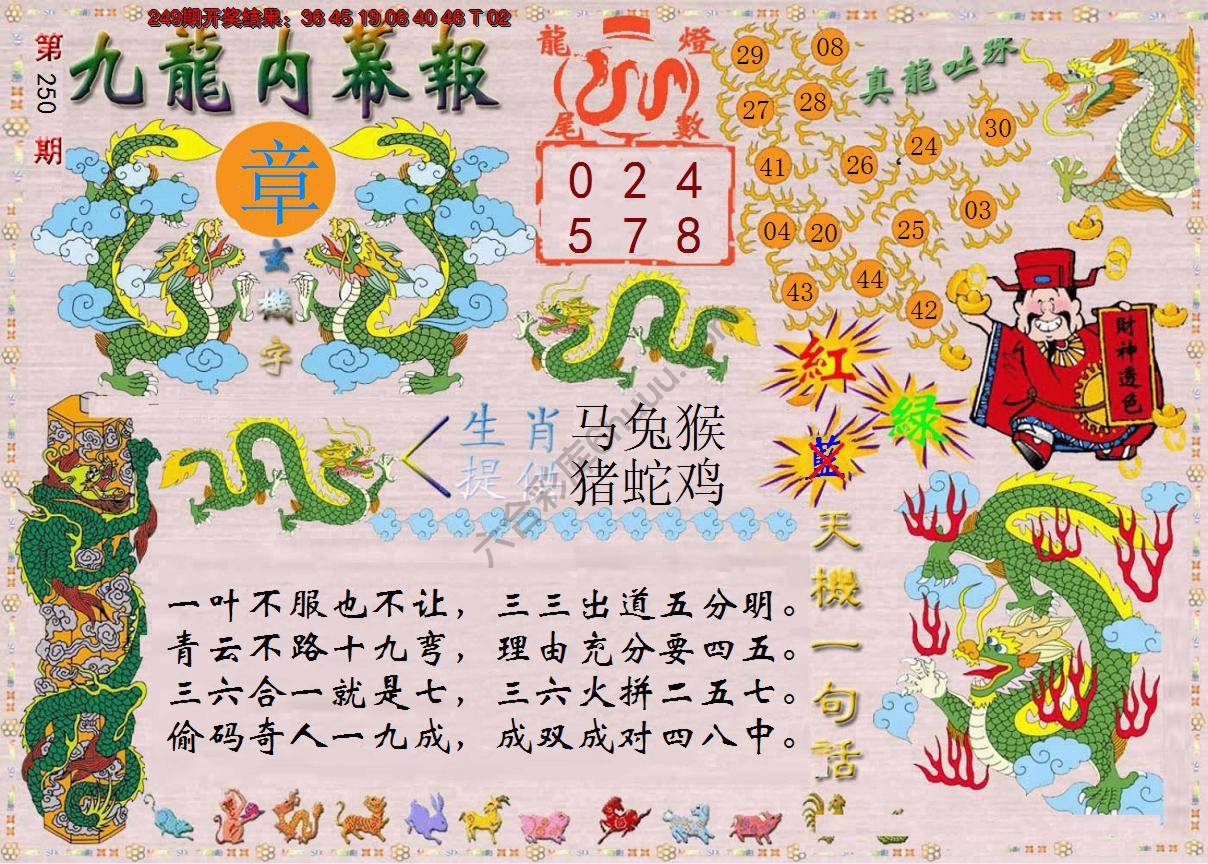 249期开奖结果：36 45 19 08 40 46 T 02
第250期
九龍内幕報
章
玄機字
龍燈
尾數
0 2 4
5 7 8
真龍吐珠
29 08
27 28
41 26 24 30
04 20 25 03
43 44 42
財神透色
紅
綠
藍
生肖 马兔猴
提供 猪蛇鸡
天機一句話
一叶不服也不让，三三出道五分明。
青云不路十九弯，理由充分要四五。
三六合一就是七，三六火拼二五七。
偷码奇人一九成，成双成对四八中。